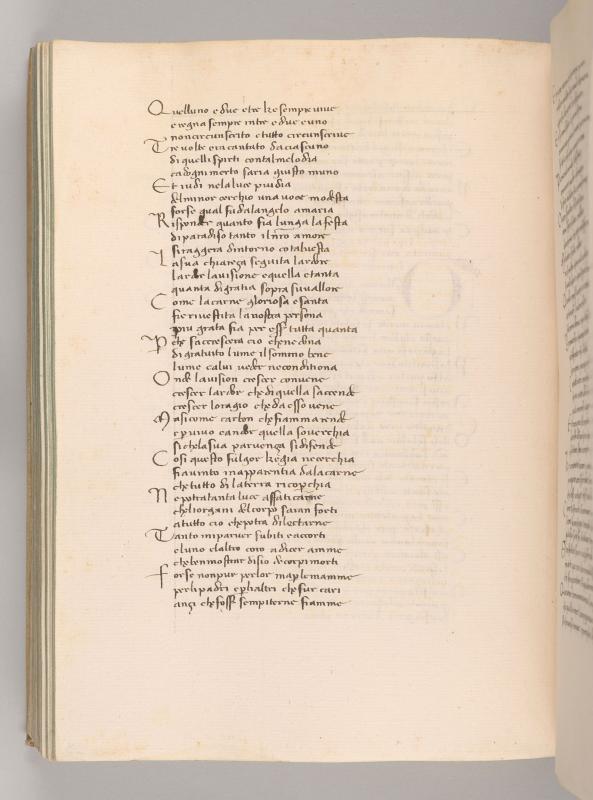 Quelluno e due etre he sempre vive
e regna sempre intre e due e uno
noncircunscrito etutto circunscrive
Tre volte era cantato daciascuno
di quelli spirti contal melodia
cadogni merto saria giusto muno
Et iudi nelaluce piu dia
delminor cerchio una voce modesta
forse qual fu dalangelo amaria
Risponder quanto fia lunga lafesta
di paradiso tanto ilnro amore
siraggera dintorno cotalvesta
Lasua chiareza seguita lardore
lardor lavisione equella etanta
quanta digratia sopra suvallore
Come lacarne gloriosa esanta
fie rivestita lanostra persona
piu grata fia per esser tutta quanta
Per che saccrescera cio chenedona
di gratuito lume ilsommo bene
lume calui veder necondiziona
Onde lavision crescer convene
crescer lardor chediquella saccende
crescer loragio cheda esso vene
Masicome carbon che fiamma rende
e per vivo candor quella soverchia
sichelasua parvenza sidifende
Cosi questo fulgor hegia necerchia
fia vinto inapparentia dalacarne
chetutto di laterra ricoperchia
Ne potra tanta luce affaticarne
cheliorgani delcorpo saran forti
atutto cio chepotra dilectarne
Tanto mi parver subiti eaccorti
eluno elaltro coro adicer amme
cheben mostrar disio decorpi morti
Forse nonpur perlor maperlemamme
perlipadri e perlialtri chefur cari
anzi che fosser sempiterne fiamme